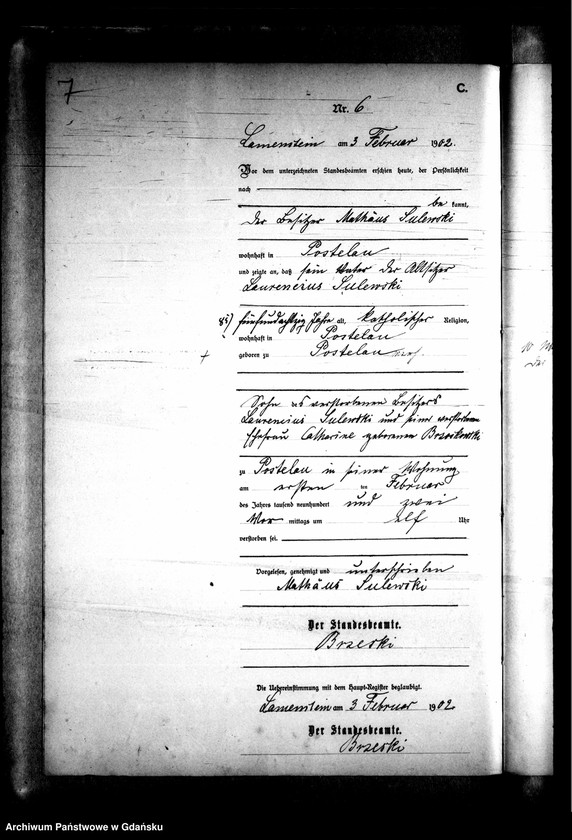 7
C.
Nr. 6
Lamenstein am 3 Februar 1902.
Vor dem unterzeichneten Standesbeamten erschien heute, der Persönlichkeit
nach
be kannt,
der Besitzer Mathäus Sulewski
wohnhaft in Postelau
und zeigte an, daß sein Vater der Altsitzer
Laurencius Sulewski
85) fünfundachtzig Jahre alt, katholischer Religion,
wohnhaft in Postelau
geboren zu Postelau
Sohn des verstorbenen Besitzers
Laurencius Sulewski und seiner verstorbenen
Ehefrau Catharine geborenen
zu Postelau in seiner Wohnung
am ersten ten Februar
des Jahres tausend neunhundert und zwei
Vor mittags um elf Uhr
verstorben sei.
Vorgelesen, genehmigt und unterschrieben
Mathäus Sulewski
Der Standesbeamte.
Brzeski
Die Uebereinstimmung mit dem Haupt-Register beglaubigt.
Lamenstein am 3 Februar 1902.
Der Standesbeamte.
Brzeski
Archiwum Państwowe w Gdańsku